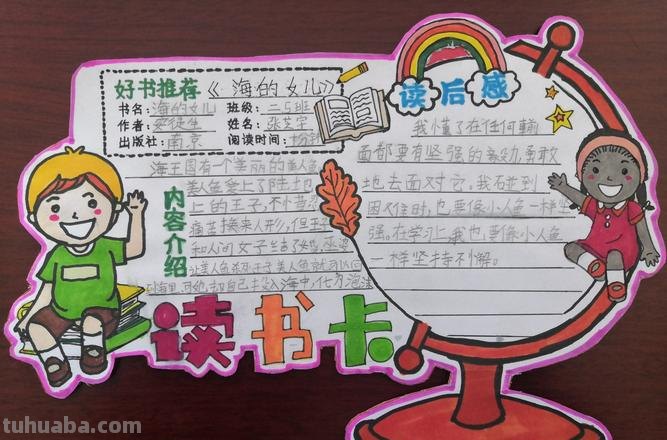 好书推荐《海的女儿》
书名：海的女儿 班级：二5班
作者：安徒生 姓名：张芝宁
出版社：南京 阅读时间：十分钟
内容介绍
海王国有一个美丽的美人鱼
美人鱼爱上了陆上
上的王子，不小
痛苦换来人形，但王子
和人间女子结了婚，巫婆
让美人鱼杀死王子美人鱼就可以回
到海里，可她，却自己投入海中，化为泡沫
读后感
我懂了在任何
面都要有坚强的 勇敢
地去面对它。我碰到
困难时，也要像小人鱼一样坚
强。在学习上我也要像小人鱼
一样坚持不懈。
读书卡
tuhuaba.com